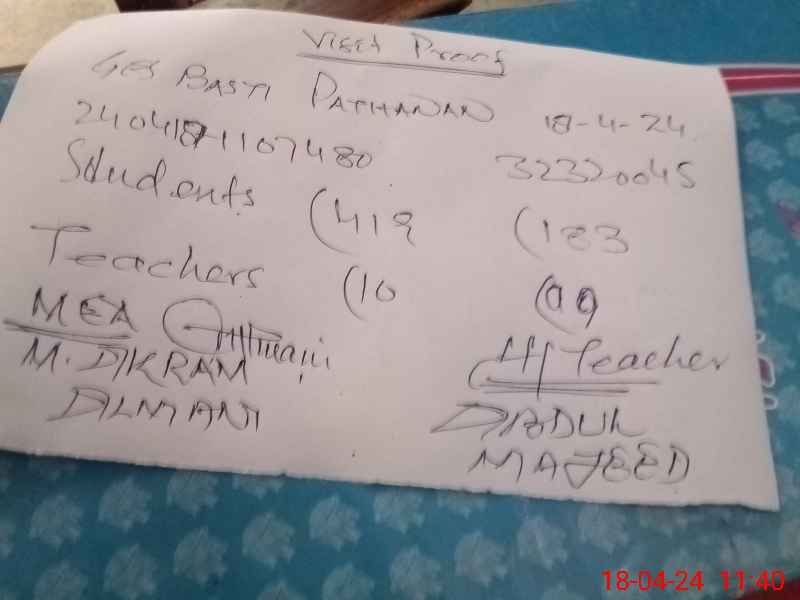 Viset Proof
GES BASTI PATHANAN 18-4-24
240418-1107480 32320045
Students (419 (183
Teachers (10 (09
MEA H/Teacher
M. IKRAM
ABDUL
MAJEED
18-04-24 11:40